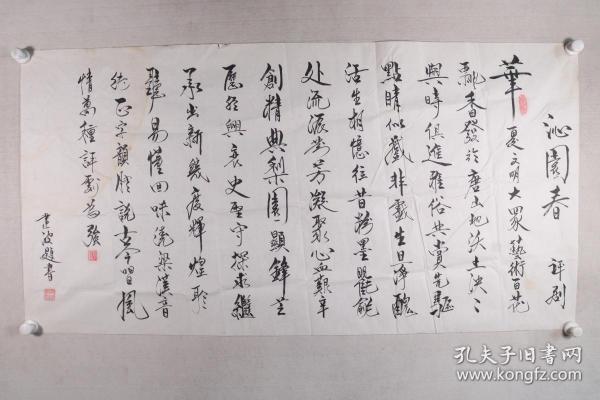 沁園春 評劇
華夏文明大衆藝術百花
飄香發於唐山地沃土泱〻
與時俱進雅俗共賞先驅
點睛似戲非戲生旦淨醜
活生相憶往昔
處流派芳凝聚心血艱辛
創精典梨園顯鋒芒
歷經興衰史堅守探求繼
承出新統度輝煌聆
聽易懂回味繞梁漢音
純正字韻腔說古今唱風
情萬種評劇為強
建波題書
孔夫子旧书网
www.kongfz.com